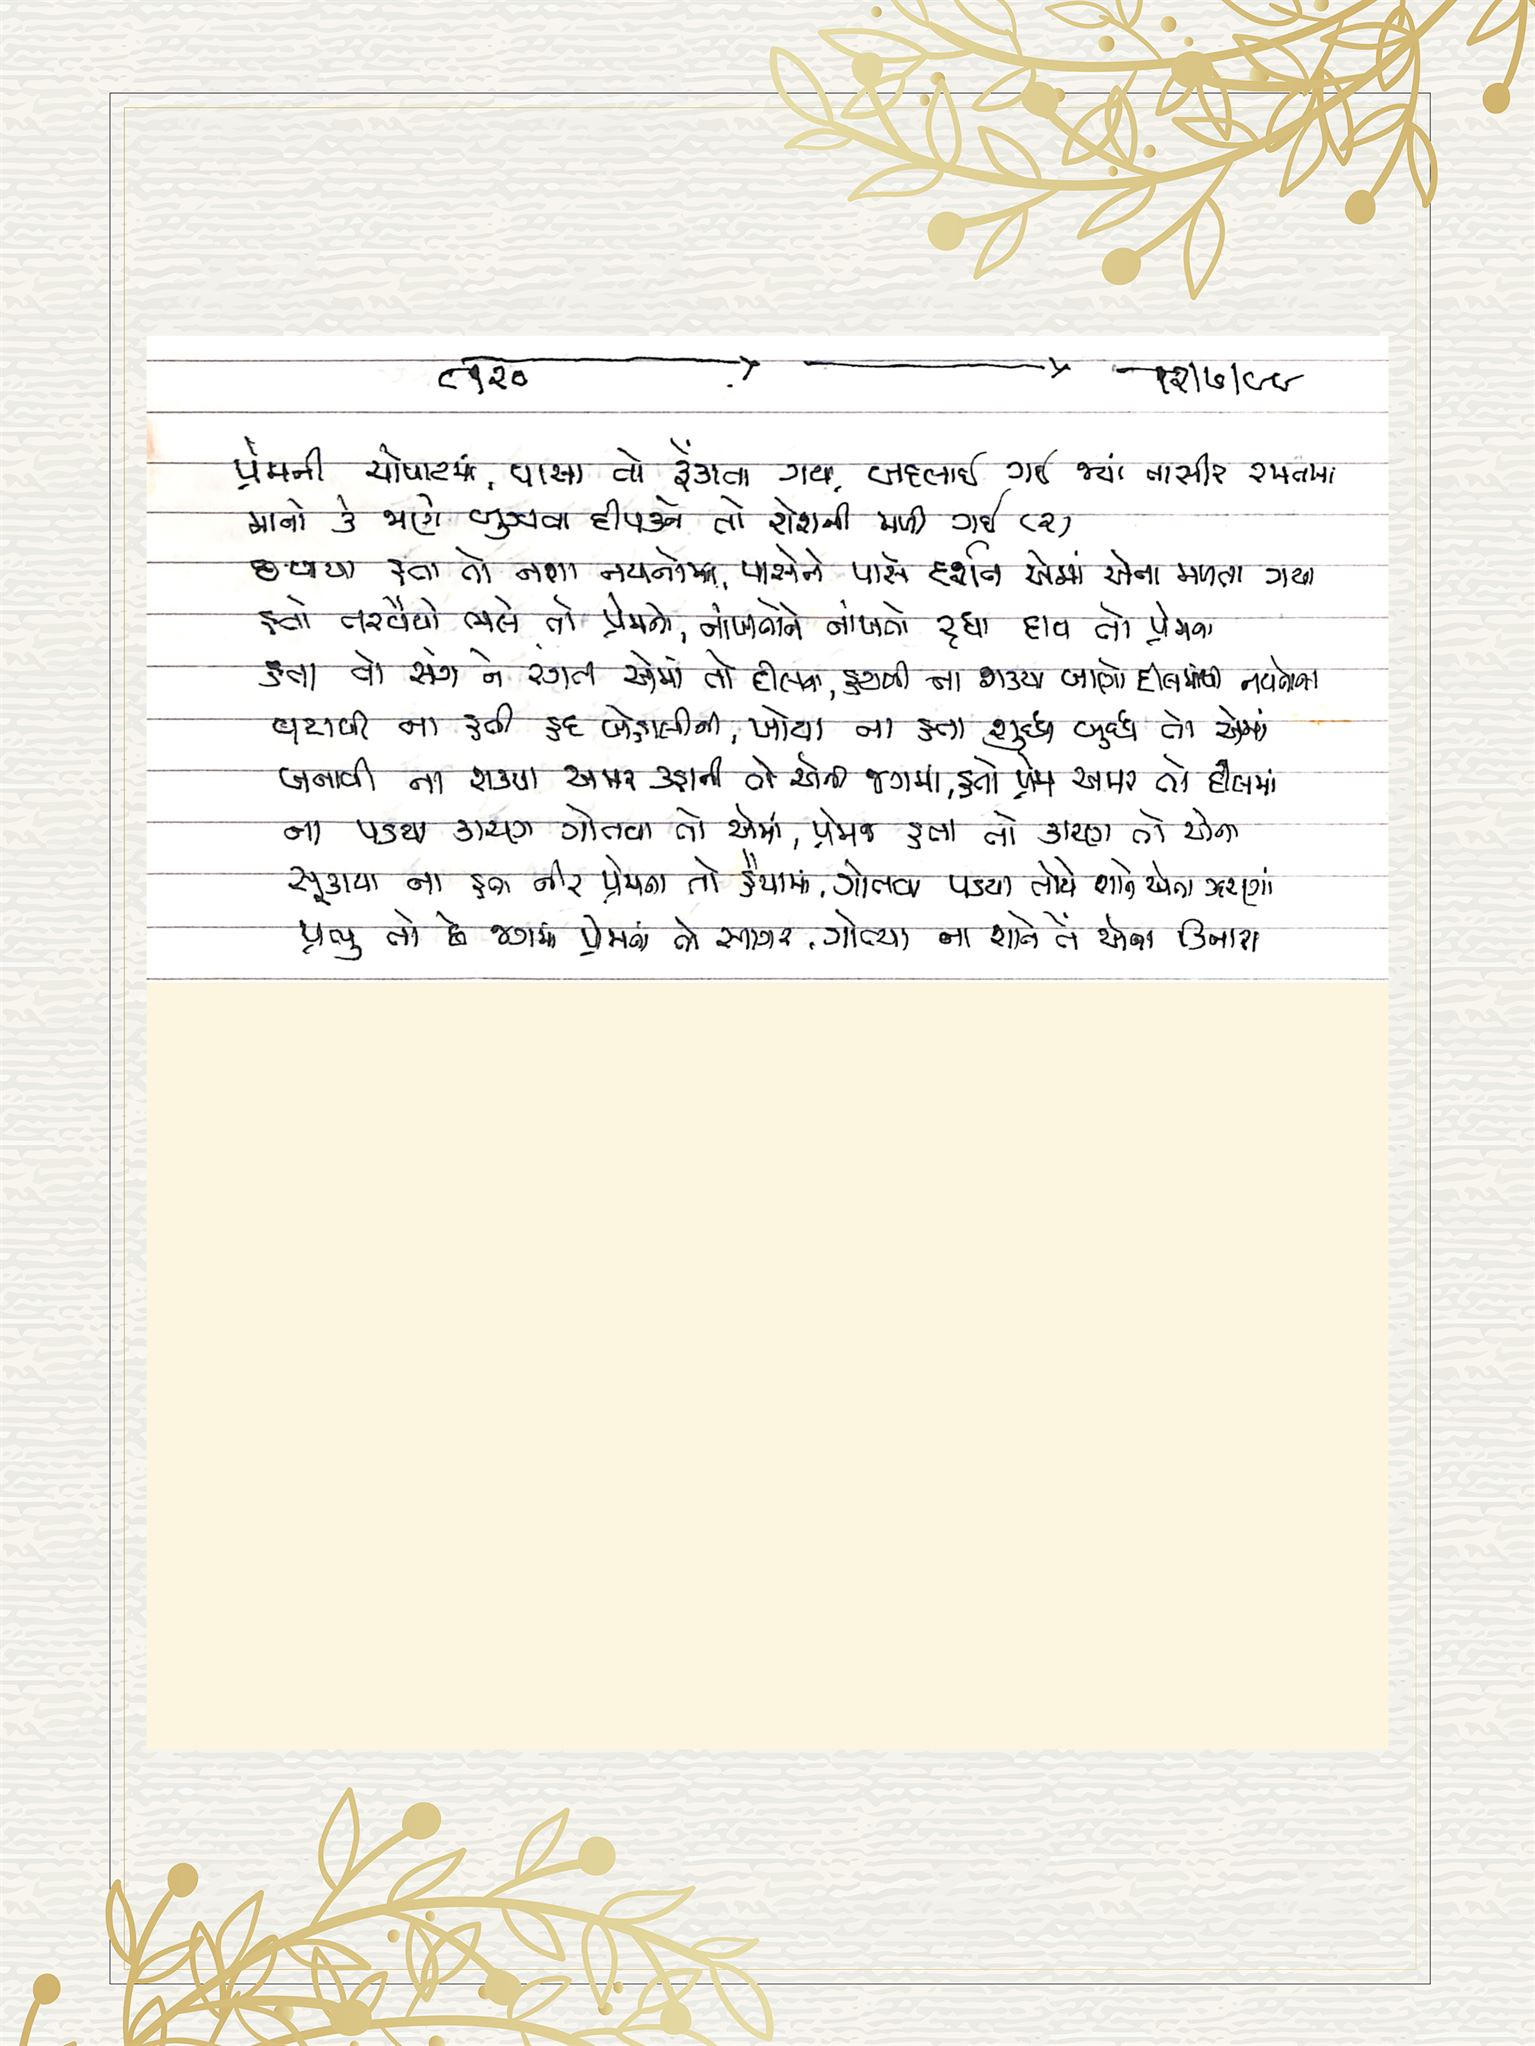 ૮૧૨૦ ૧૨/૭/૯૯
પ્રેમની ચોપાટમાં, પાસા તો ફેંકાતા ગયા, બદલાઈ ગઈ જ્યાં તાસીર રમતમાં
માનો કે ભણે બુઝવા દીપકને તો રોશની મળી ગઈ (૨)
છવાયા હતા તો નશા નયનોમાં, પાસેને પાસે દર્શન એમાં એના મળતા ગયા
હતો તરવૈયો ભલે તો પ્રેમનો, નાંખજોને નાંખજો રૂધા દાવ તો પ્રેમના
હતા તો સંગ ને રંગત એમાં તો દીલના, હટાવી ના શક્યા જાણે દીલમાંથી નયનોના
ધરાવી ના હતી હદ બેહાલીની, ખોયા ના હતા શુદ્ધ બુદ્ધ તો એમાં
બનાવી ના શક્યા અમર કહાની તો એની જગમાં, હતો પ્રેમ અમર તો દીલમાં
ના પડયા કારણ ગોતવા તો એમાં, પ્રેમજ હતા તો કારણ તો એના
સૂકાયા ના હતા નીર પ્રેમના તો હૈયામાં, ગોતવા પડયા તોયે શાને એના ઝરણાં
પ્રભુ તો છે જગમાં પ્રેમનાં તો સાગર, ગોત્યા ના શાને તેં એના કિનારા